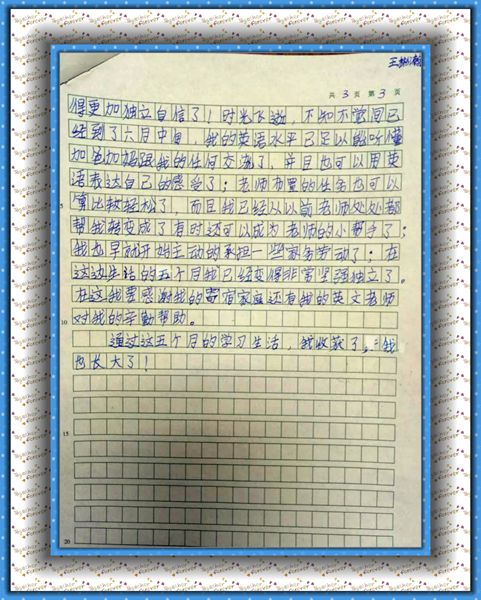 共 3 页 第 3 页
得更加独立自信了！时光飞逝，不知不觉间已
经到了六月中旬，我的英语水平已足以能听懂
加爸加妈跟我的任何交流了，并且也可以用英
语表达自己的感受了；老师布置的任务也可以
算比较轻松了，而且我已经从以前老师处处都
帮我转变成了有时还可以成为老师的小帮手了；
我也早就开始主动的承担一些家务劳动了；在
这边生活的五个月我已经变得非常坚强独立了。
在这我要感谢我的寄宿家庭还有我的英文老师
对我的辛勤帮助。
通过这五个月的学习生活，我收获了，我
也长大了！
5
10
15
20